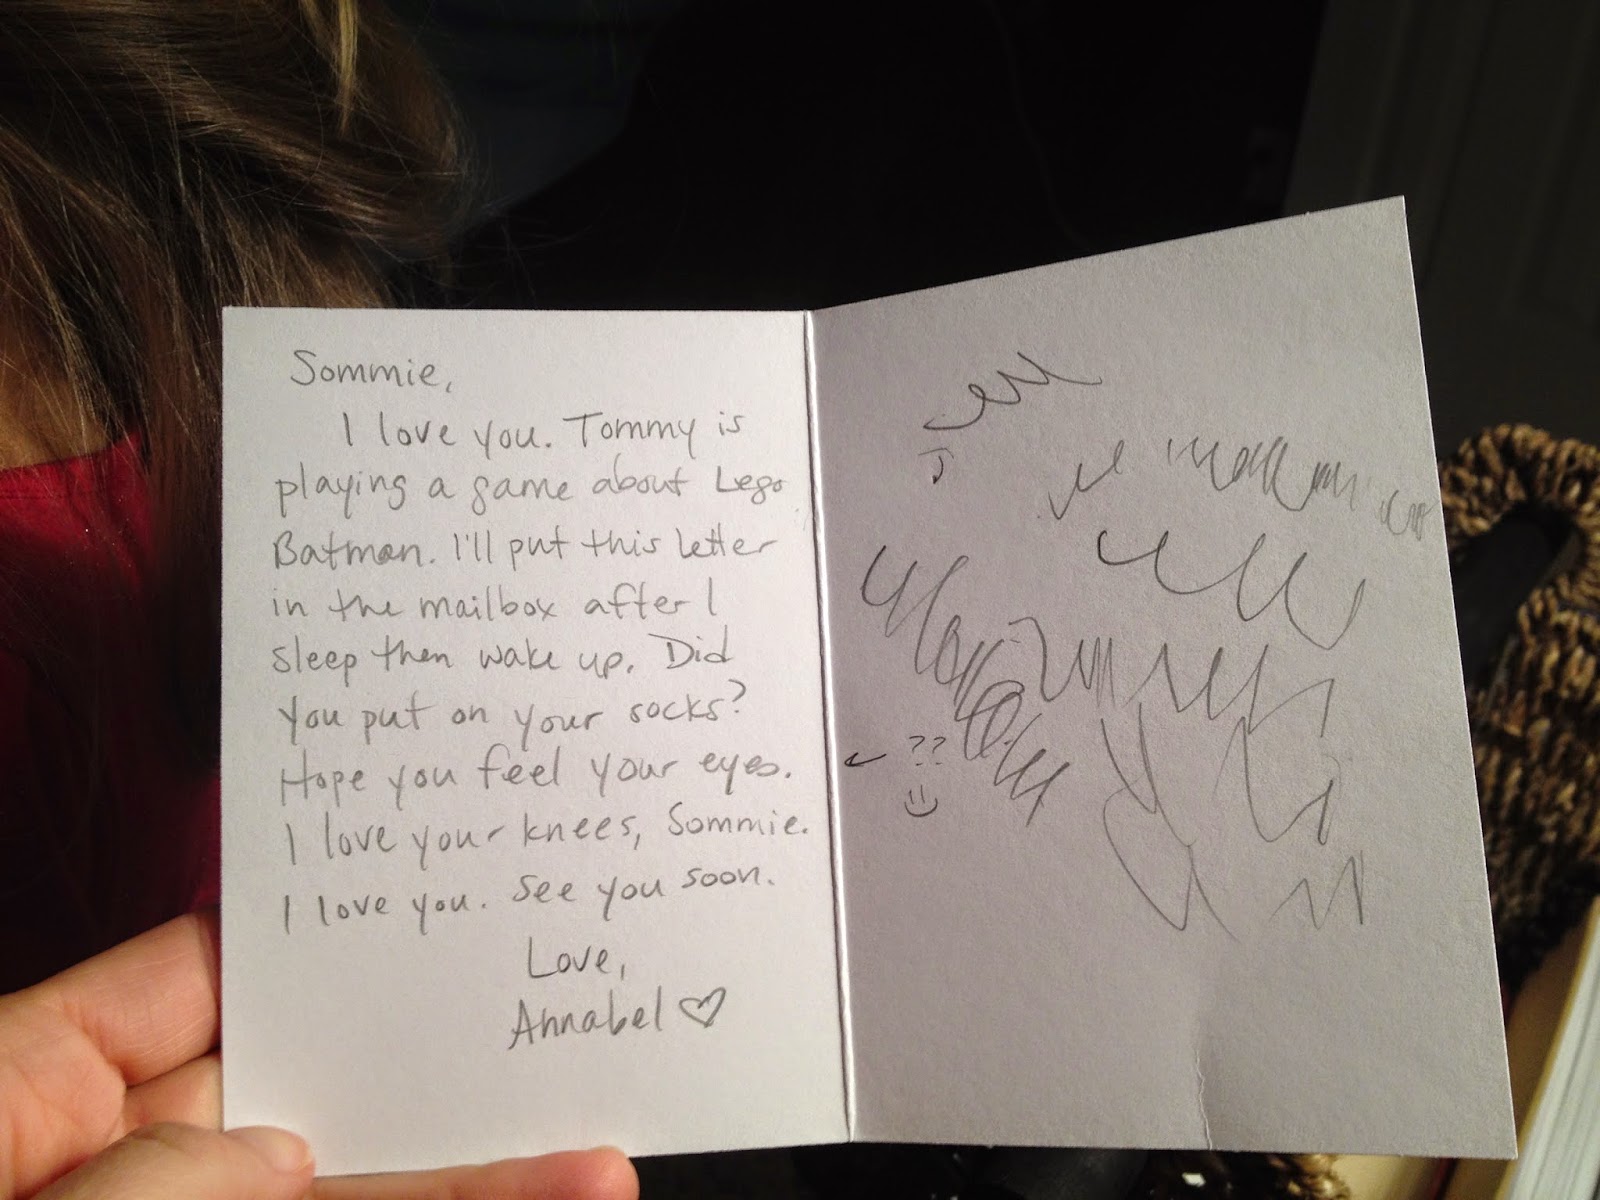 Sommie,
I love you. Tommy is
playing a game about Lego
Batman. I'll put this letter
in the mailbox after I
sleep then wake up. Did
you put on your socks?
Hope you feel your eyes.
I love your knees, Sommie.
I love you. See you soon.
Love,
Annabel ♡
← ??